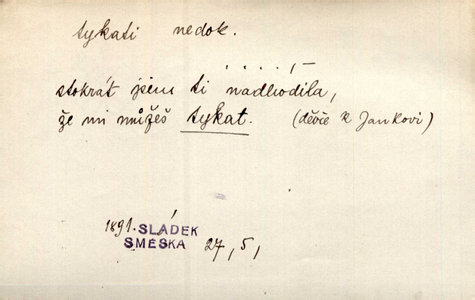 tykati nedok.
. . . . , –
stokrát jsem ti nadhodila,
že mi můžeš tykat. (děvče k Jankovi)
1891. SLÁDEK
SMĚSKA 27, 5,